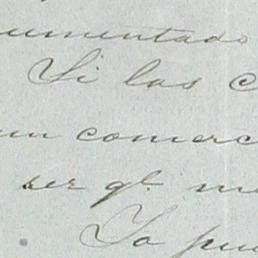 umentado
Si las c
un comerc
ser ql. me
Ya pue